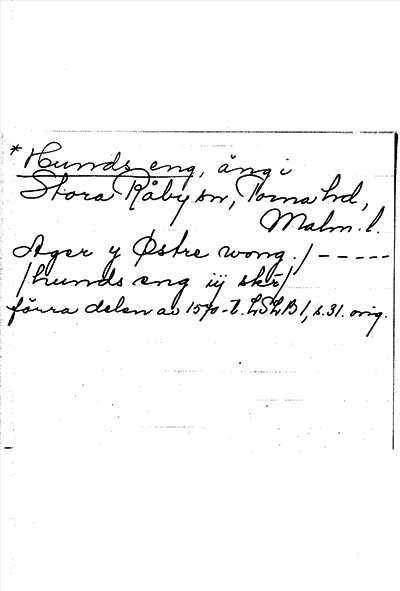 * Hunds eng, äng i
Stora Råby sn, Torna hd,
Malm. l.
Ager y Østre wong. / - - - - -
/ hunds eng iij skr /
förra delen av 1570-t. LSLB 1, s. 31. orig.